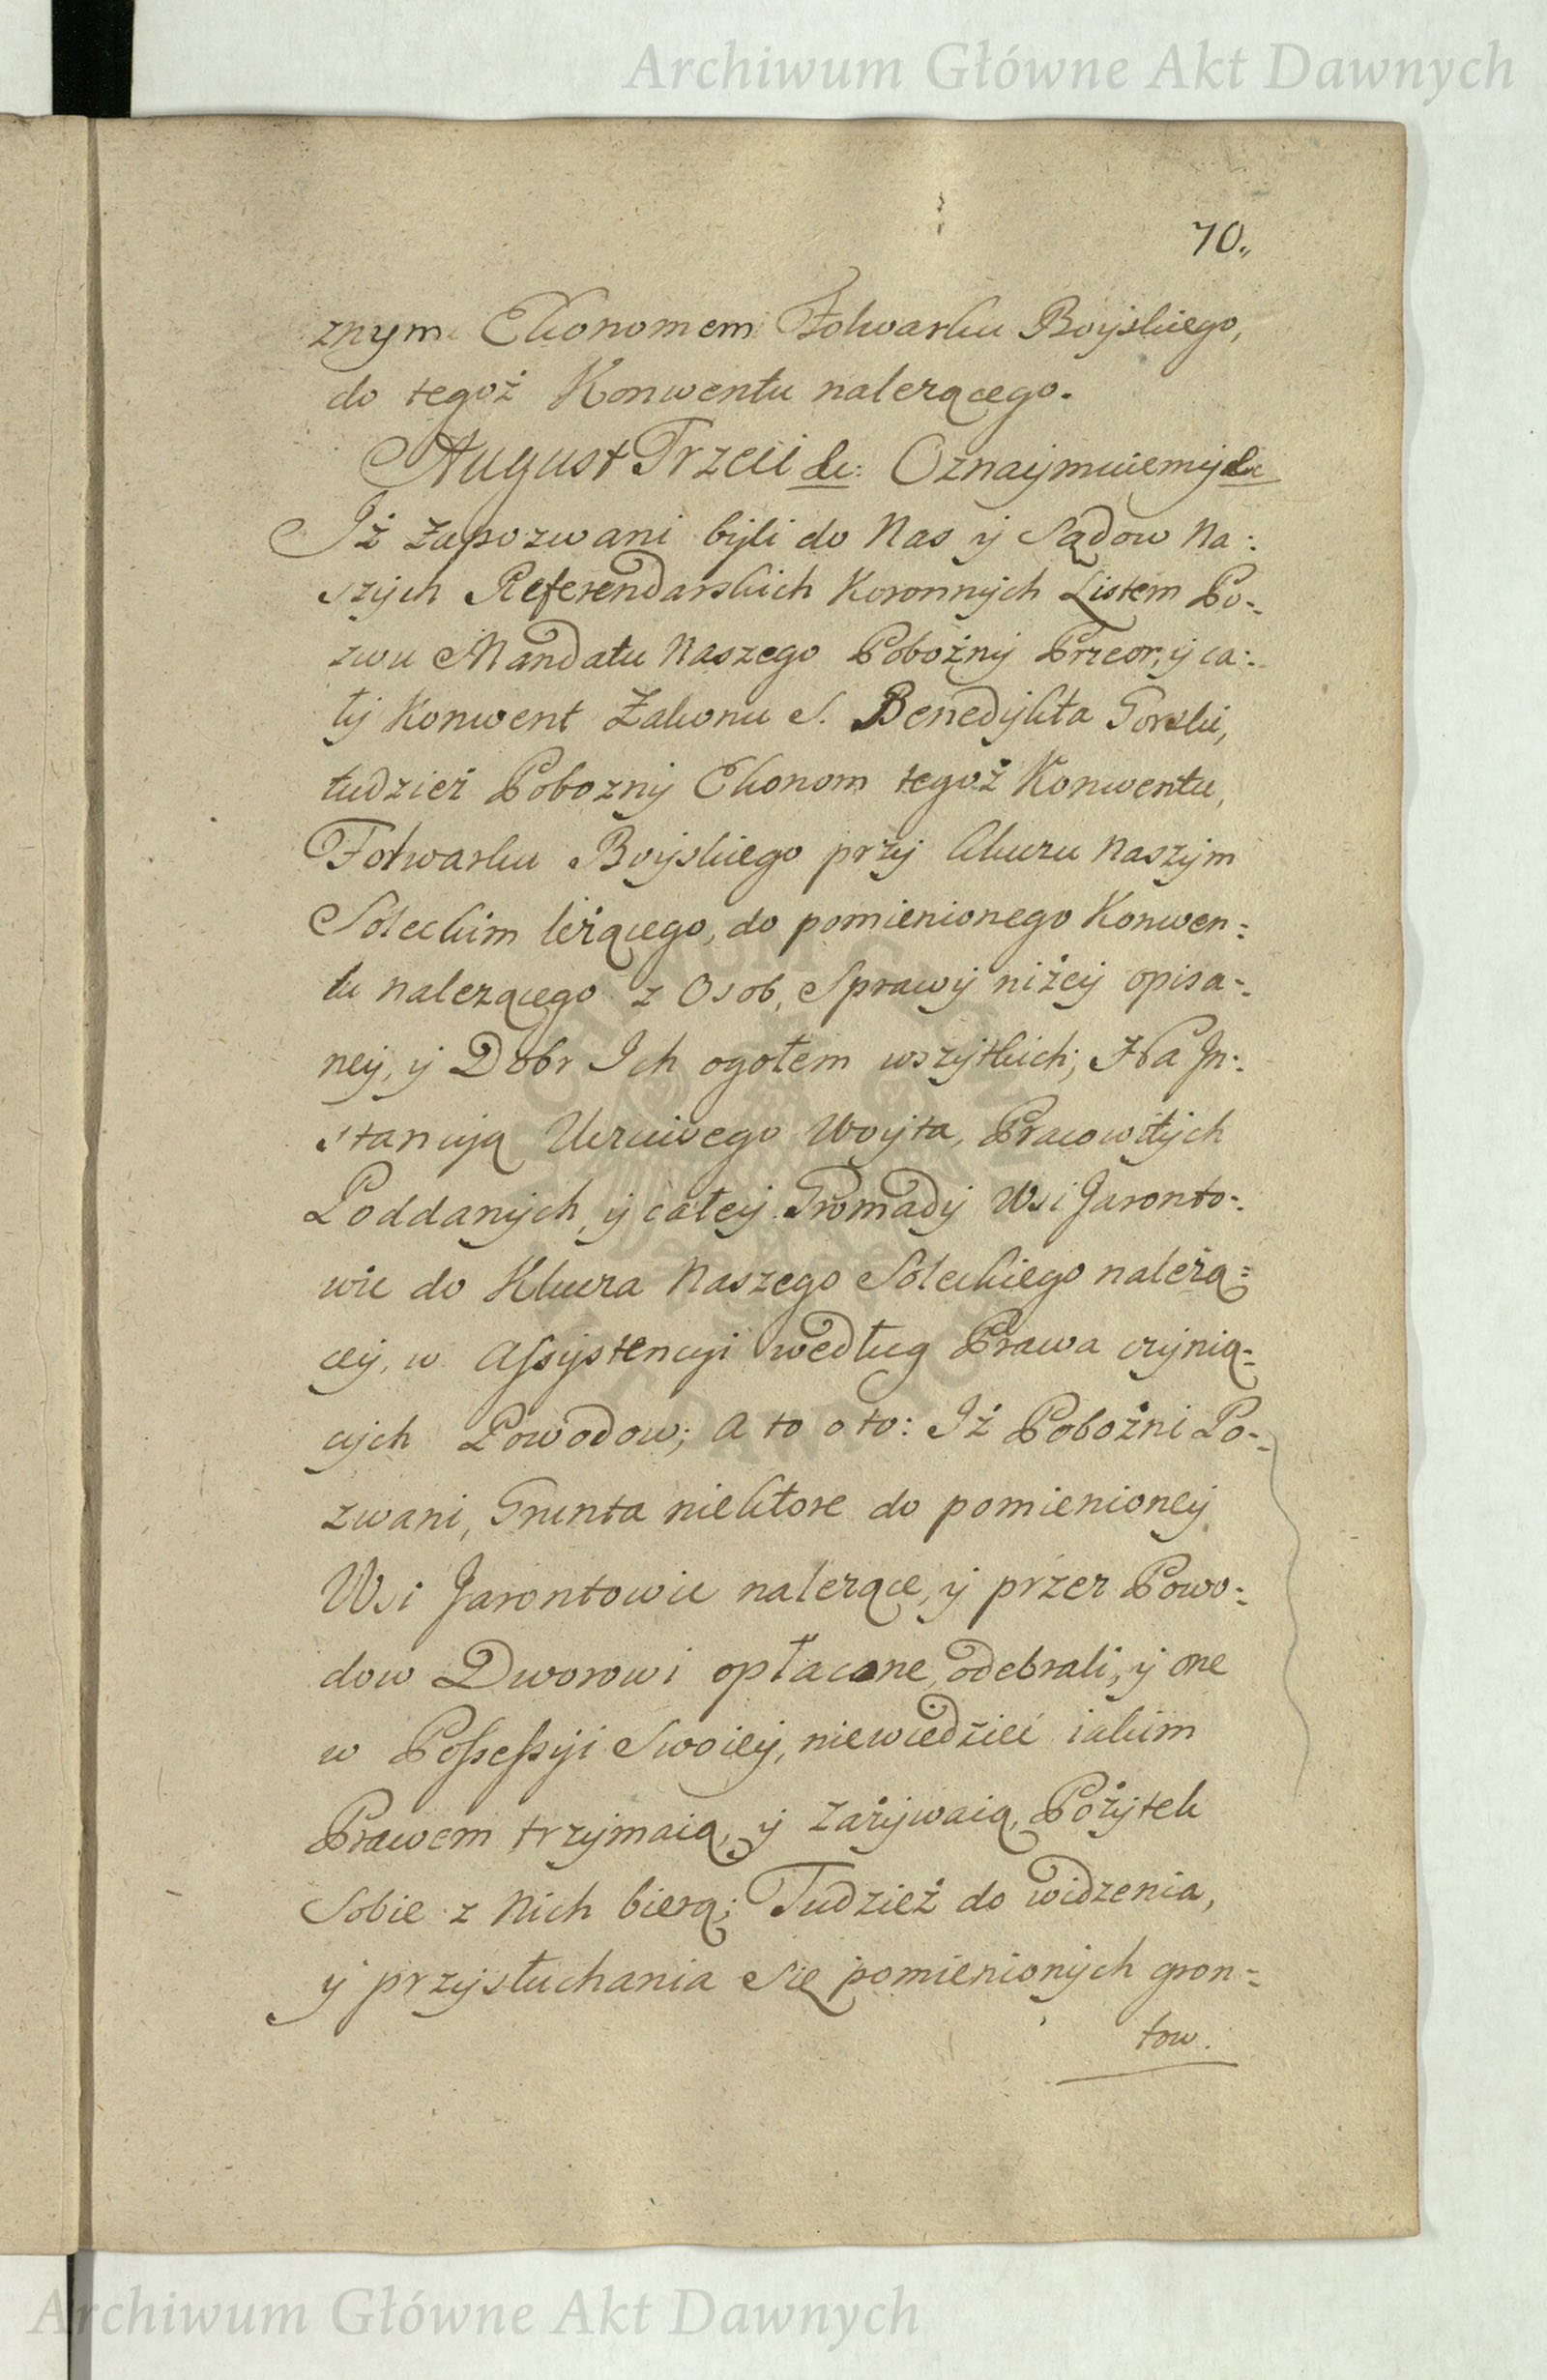 Archiwum Główne Akt Dawnych
70.
znym Ekonomem Folwarku Boyskiego,
do tegoż Konwentu nalezącego.
August Trzeci &c: Oznaymuiemy &c
Iż Zapozwani byli do Nas y Sądow Na:
szych Referendarskich Koronnych Listem Po-
zwu Mandatu Naszego Pobożny Przeor, y ca:
ły Konwent Zakonu S. Benedykta Gorski,
tudzież Pobozny Ekonom tegoż Konwentu,
Folwarku Boyskiego przy Kluzu Naszym
Soleckim leżącego, do pomienionego Konwen:
tu nalezącego z Osob, Sprawy niżey opisa:
ney, y Dobr Ich ogołem wszytkich; Na In:
stancyą Uczciwego Woyta, Pracowitych
Poddanych, y całey Gromady Wsi Jaronto:
wic do Klucza Naszego Soleckiego należą:
cey, w Assystencyi według Prawa czynią:
cych Powodow; a to o to: Iż Pobożni Po-
zwani, Grunta niektore do pomienioney
Wsi Jarontowic nalezące, y przez Powo:
dow Dworowi opłacone, odebrali, y one
w Possessyi Swoiey, niewiedzieć iakim
Prawem trzymaią, y Zażywaią, Pożytek
Sobie z Nich bierą; Tudzież do widzenia,
y przysłuchania Się pomienionych gron:
tow.
Archiwum Główne Akt Dawnych